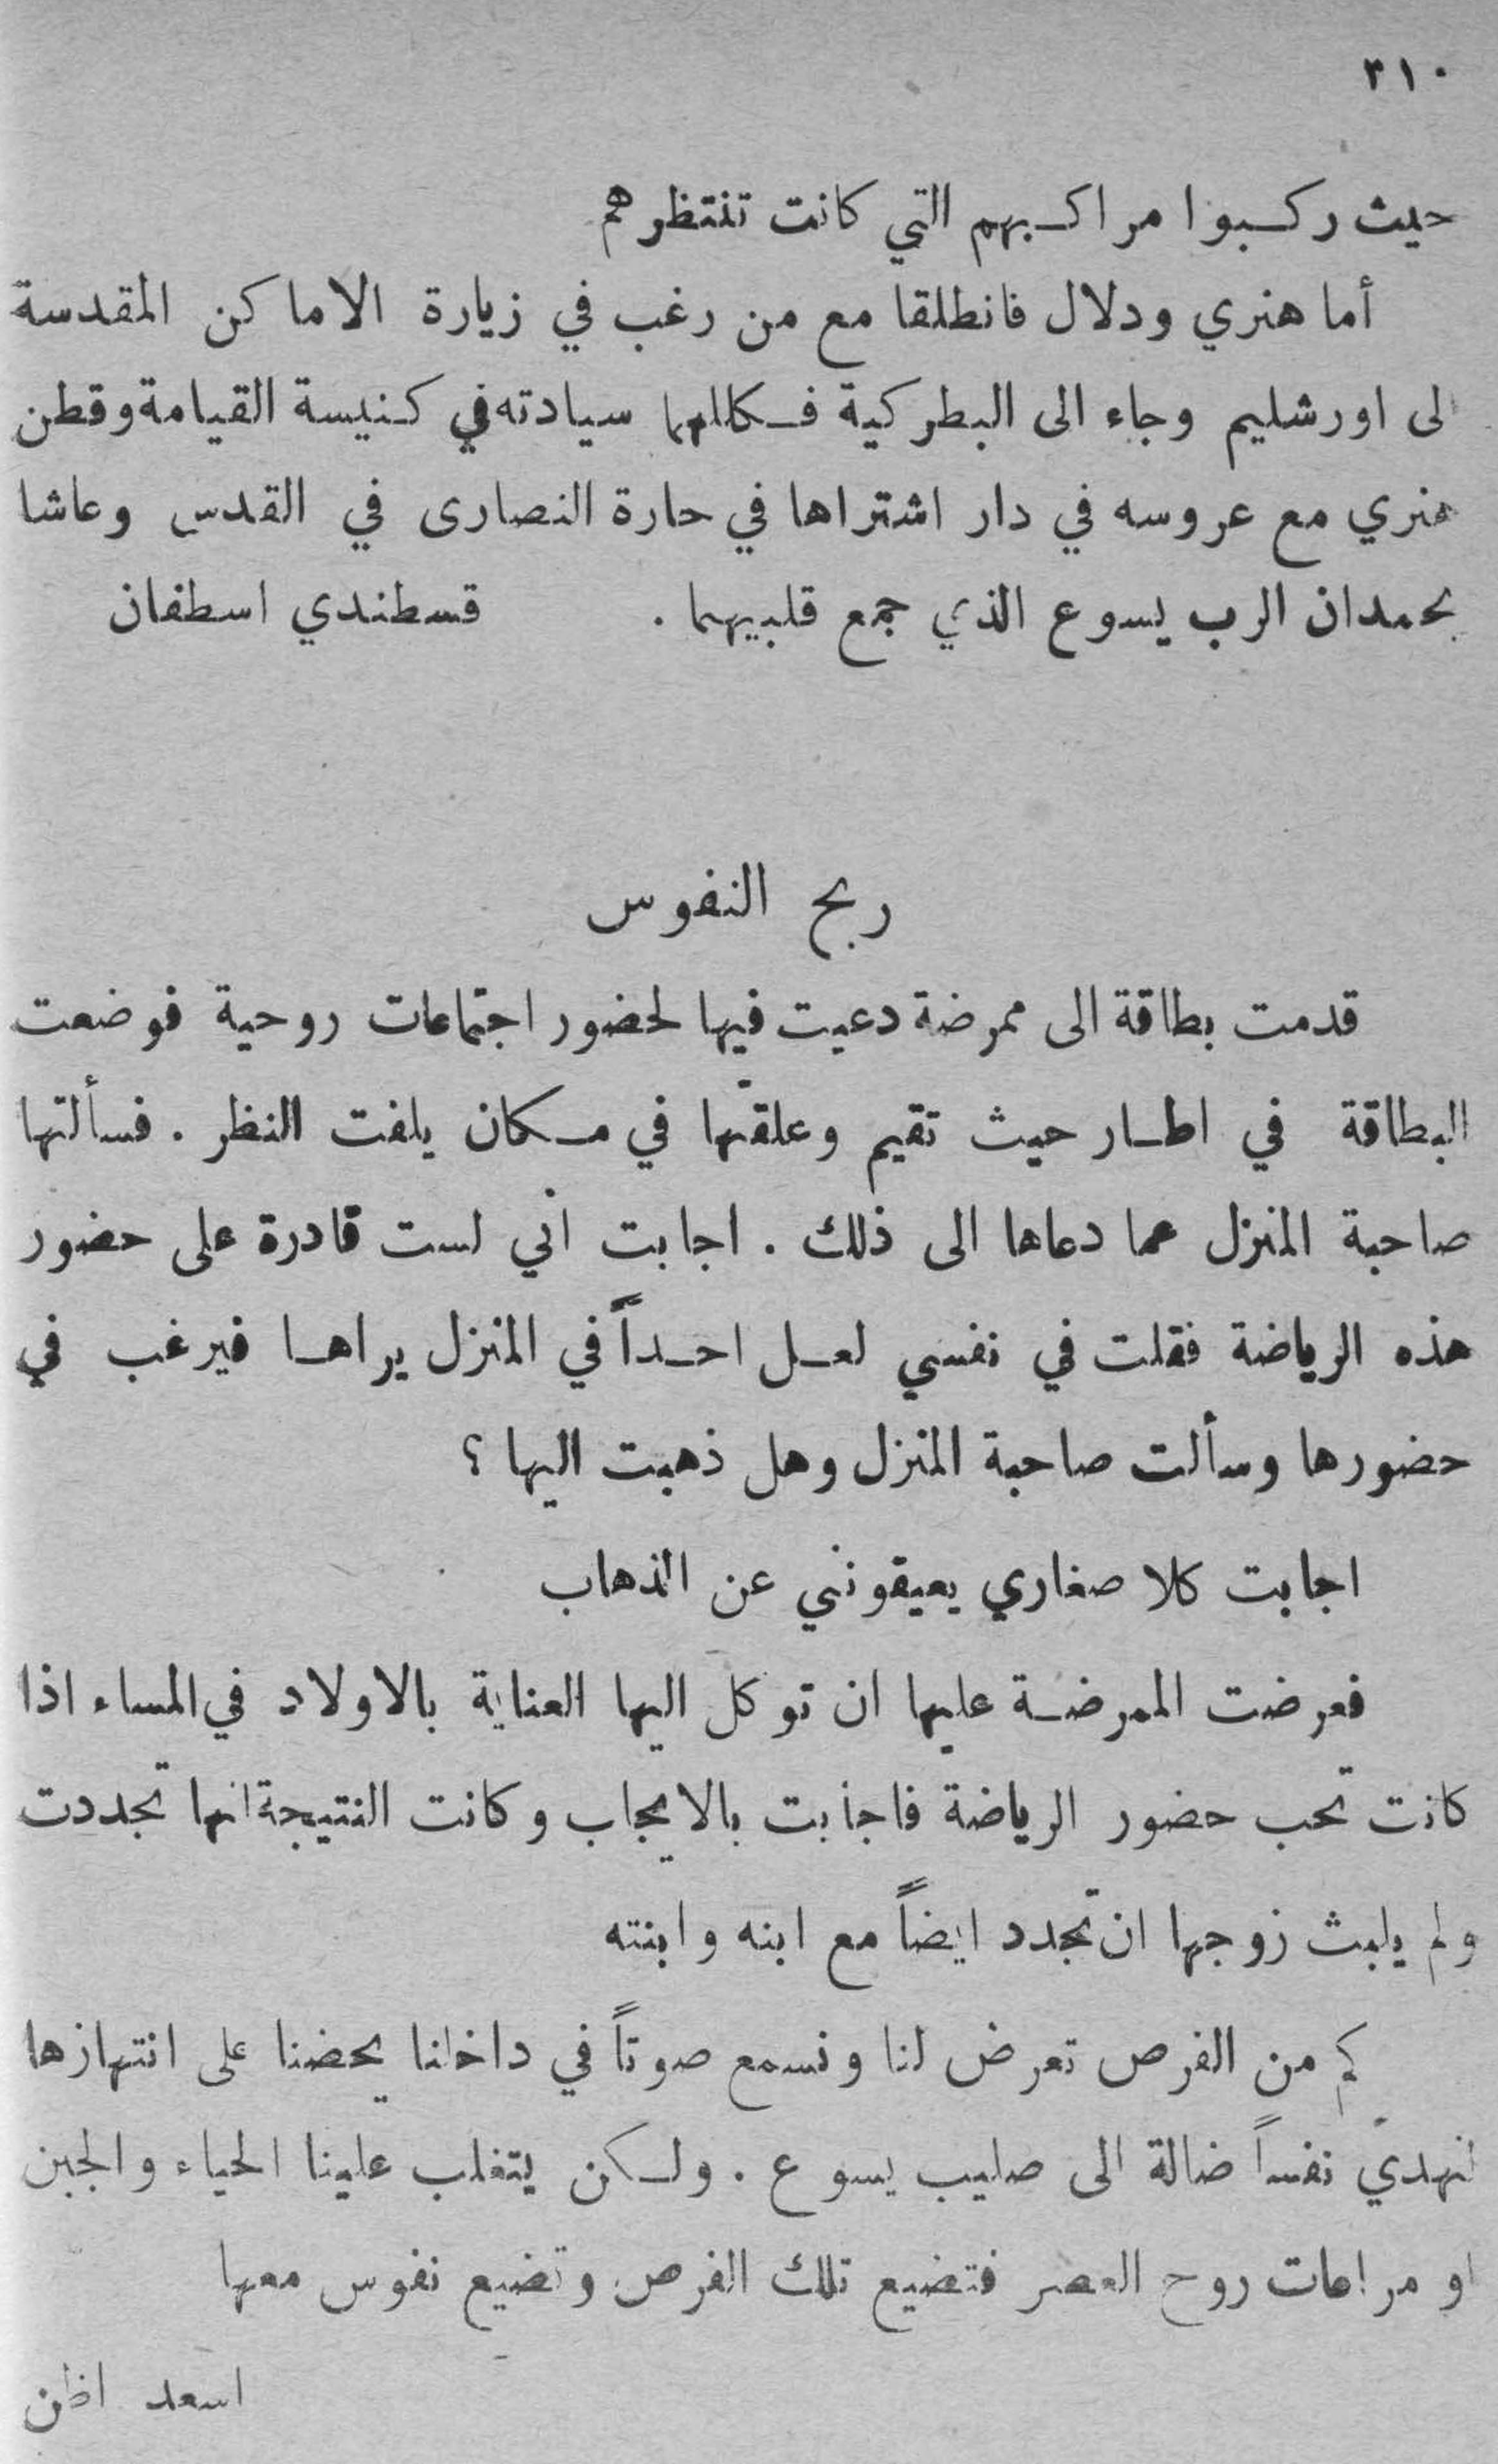 ٣١٠
حيث ركبوا مراكبهم التي كانت تنتظرهم
أما هنري ودلال فانطلقا مع من رغب في زيارة الاماكن المقدسة
الى اورشليم وجاء الى البطركية فكللهما سيادته في كنيسة القيامة وقطن
هنري مع عروسه في دار اشتراها في حارة النصارى في القدس وعاشا
بحمدان الرب يسوع الذي جمع قلبيهما . قسطندي اسطفان
ربح النفوس
قدمت بطاقة الى ممرضة دعيت فيها لحضور اجتماعات روحية فوضعت
البطاقة في اطار حيث تقيم وعلقتها في مكان يلفت النظر . فسألتها
صاحبة المنزل عما دعاها الى ذلك . اجابت اني لست قادرة على حضور
هذه الرياضة فقلت في نفسي لعل احداً في المنزل يراها فيرغب في
حضورها وسألت صاحبة المنزل وهل ذهبت اليها ؟
اجابت كلا صغاري يعيقونني عن الذهاب
فعرضت الممرضة عليها ان توكل اليها العناية بالاولاد في المساء اذا
كانت تحب حضور الرياضة فاجابت بالايجاب وكانت النتيجة انها تجددت
ولم يلبث زوجها ان تجدد ايضاً مع ابنه وابنته
كم من الفرص تعرض لنا ونسمع صوتاً في داخلنا يحضنا على انتهازها
لنهدي نفساً ضالة الى صليب يسوع . ولكن يتغلب علينا الحياء والجبن
او مراعات روح العصر فتضيع تلك الفرص وتضيع نفوس معها
اسعد